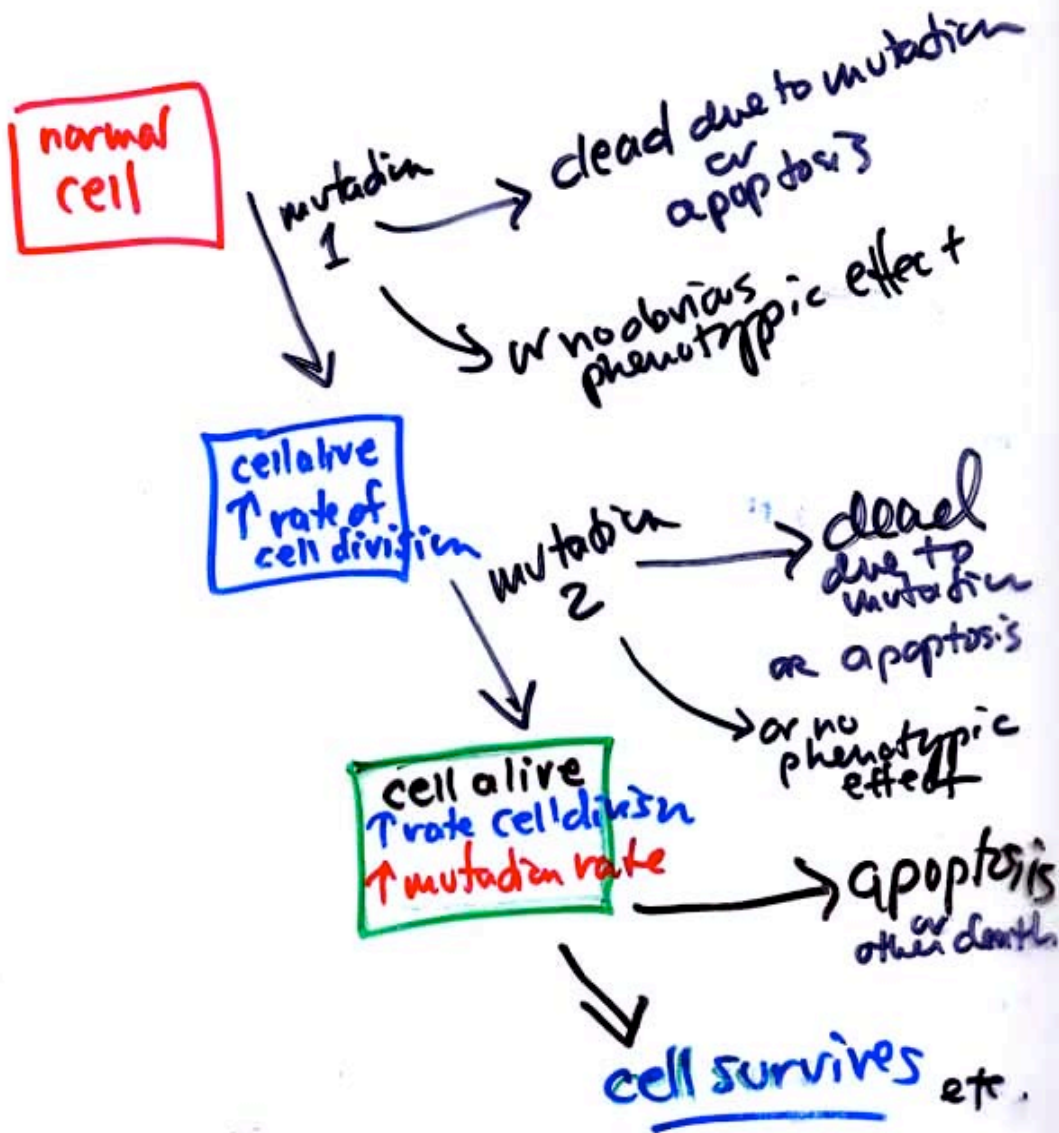 normal
cell
mutation
1
dead due to mutation
or
apoptosis
or no obvious
phenotypic effect
cell alive
↑ rate of
cell division
mutation
2
dead
due to
mutation
or apoptosis
or no
phenotypic
effect
cell alive
↑ rate cell division
↑ mutation rate
apoptosis
or
other death.
cell survives etc.